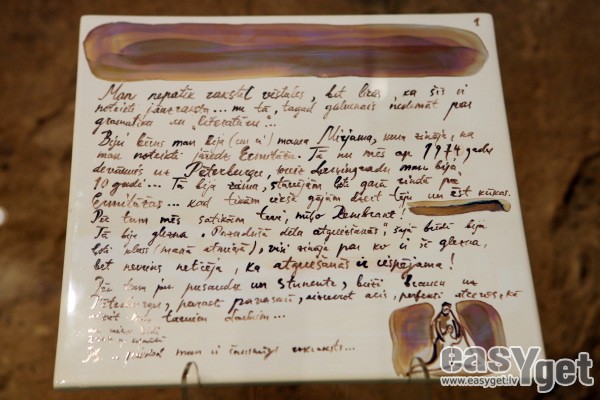 1
Man nepatīk rakstīt vēstules, bet liekas, ka šis ir
noteikti jāuzraksta... nu tā, tagad galvenais nedomāt par
gramatiku un "literatūru"...
Biju bērns man bija (un ir) mamma Mirjama, kura zināja, ka
man noteikti jāredz Ermitāža. Tā nu mēs ap 1974 gadu
devāmies uz Pēterburgu, toreiz Ļeņingradu man bija
10 gadi... Tā bija ziema, stāvējām ļoti garā rindā pie
Ermitāžas... kad tikām iekšā gājām dzert tēju un ēst kūkas.
Pēc tam mēs satikām tevi, mīļo Rembrant!
Tā bija glezna "Pazudušā dēla atgriešanās" šajā brīdī bija
ļoti kluss (manā atmiņā), visi zināja par ko ir šī glezna,
bet neviens neticēja, ka atgriešanās ir iespējama!
Pēc tam jau pusaudze un studente, bieži braucu uz
Pēterburgu, parasti pavasarī, aizverot acis, perfekti atceros, kā
man ir
easYget
www.easyget.lv